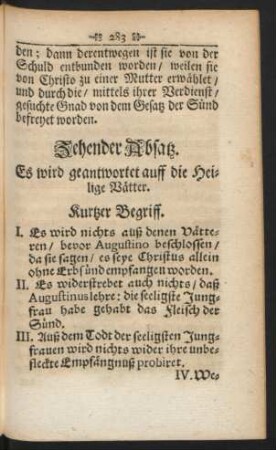 283
den; dann derentwegen ist sie von der
Schuld entbunden worden/ weilen sie
von Christo zu einer Mutter erwählet/
und durch die/ mittels ihrer Verdienst/
gesuchte Gnad von dem Gesatz der Sünd
befreyet worden.
Zehender Absatz.
Es wird geantwortet auff die Hei-
lige Vätter.
Kurtzer Begriff.
I. Es wird nichts auß denen Vätte-
ren/ bevor Augustino beschlossen/
da sie sagen/ es seye Christus allein
ohne Erbsünd empfangen worden.
II. Es widerstrebet auch nichts/ daß
Augustinus lehre: die seeligste Jung-
frau habe gehabt das Fleisch der
Sünd.
III. Auß dem Todt der seeligsten Jung-
frauen wird nichts wider ihre unbe-
fleckte Empfängnuß probiret.
IV. We-